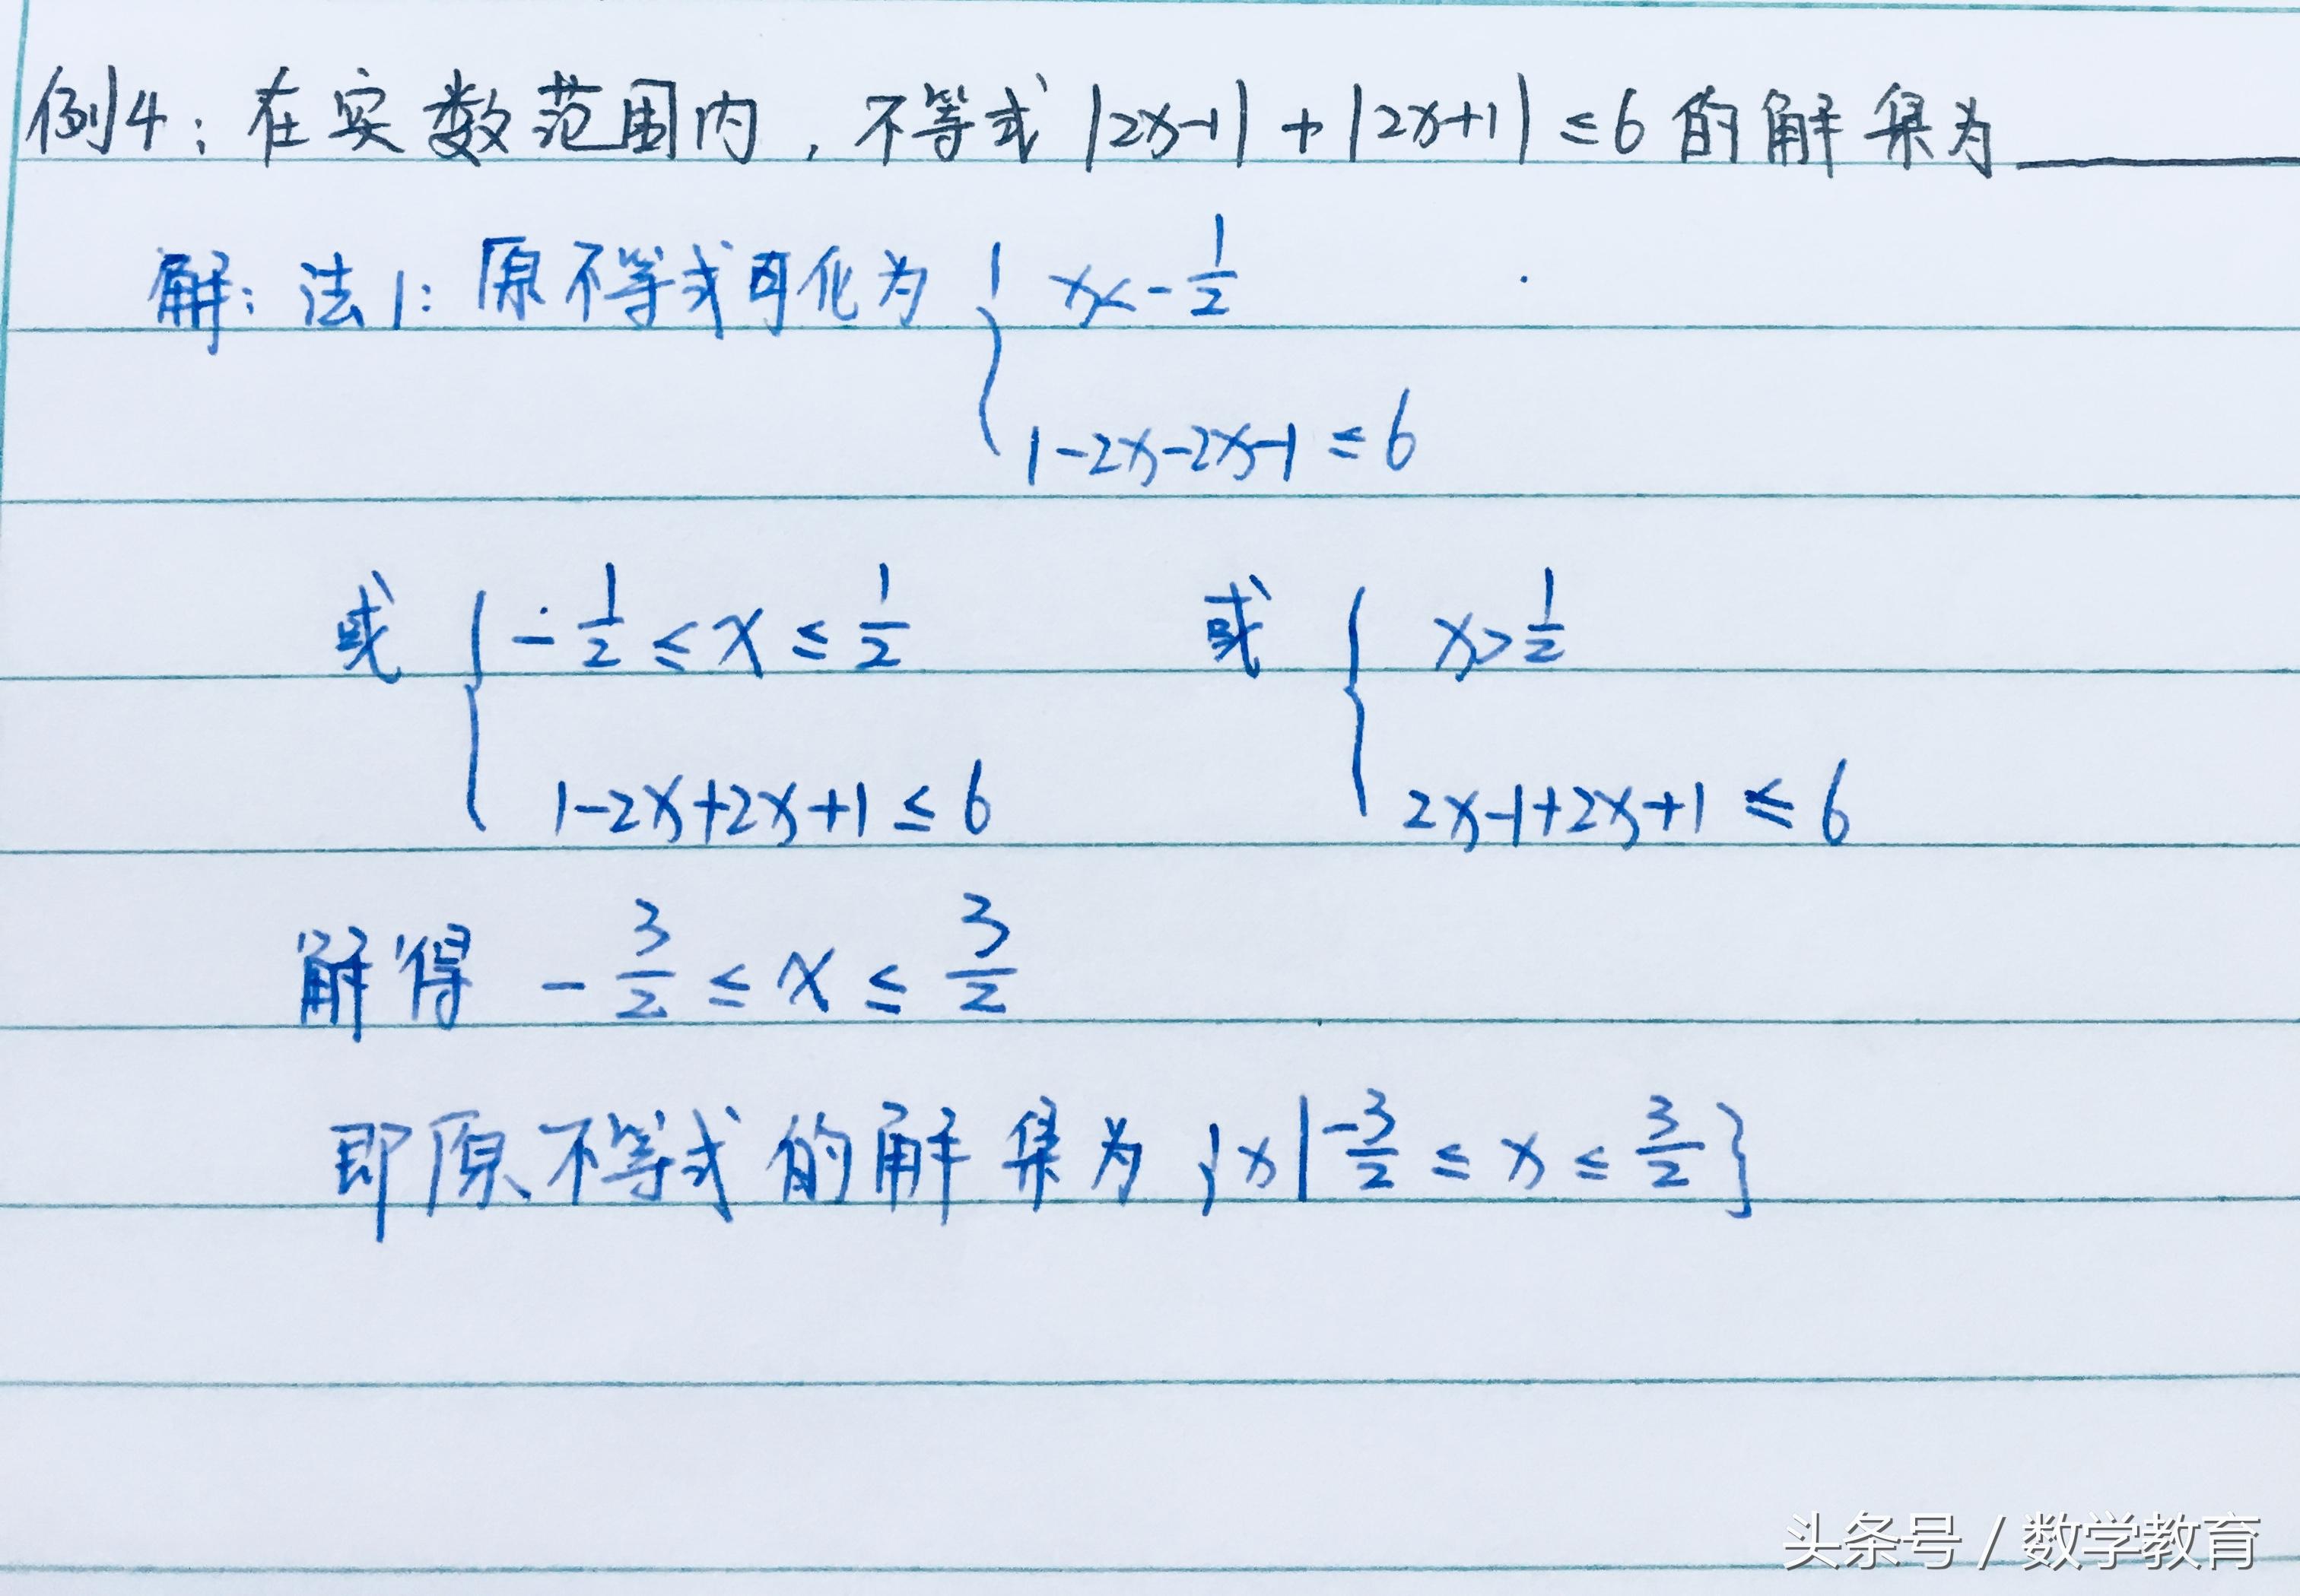 例4：在实数范围内，不等式|2x-1|+|2x+1|≤6的解集为______
解：法1：原不等式可化为{ x<-1/2
1-2x-2x-1≤6
或{ -1/2≤x≤1/2 或{ x>1/2
1-2x+2x+1≤6 2x-1+2x+1≤6
解得 -3/2≤x≤3/2
即原不等式的解集为{x|-3/2≤x≤3/2}
头条号/数学教育